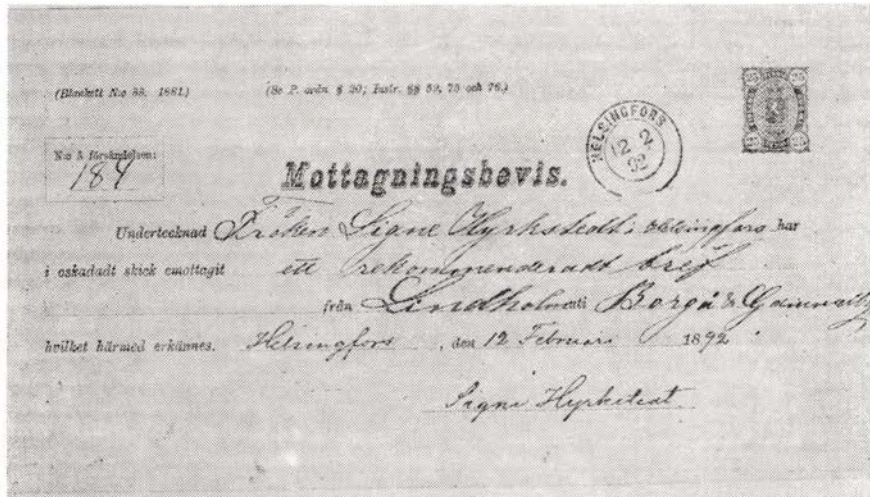 (Blankett N:o 38, 1881.) (Se P. ordn § 20; Instr. §§ 59, 75 och 76.)
25 25
HELSINGFORS
12 2
92
N:o å försändelsen:
184
Mottagningsbevis.
Undertecknad Fröken Signe Hyrkstedt i Helsingfors har
i oskadadt skick emottagit ett rekommenderadt bref
från Lindholm uti Borgå
hvilket härmed erkännes. Helsingfors, den 12 Februari 1892
Signe Hyrkstedt.